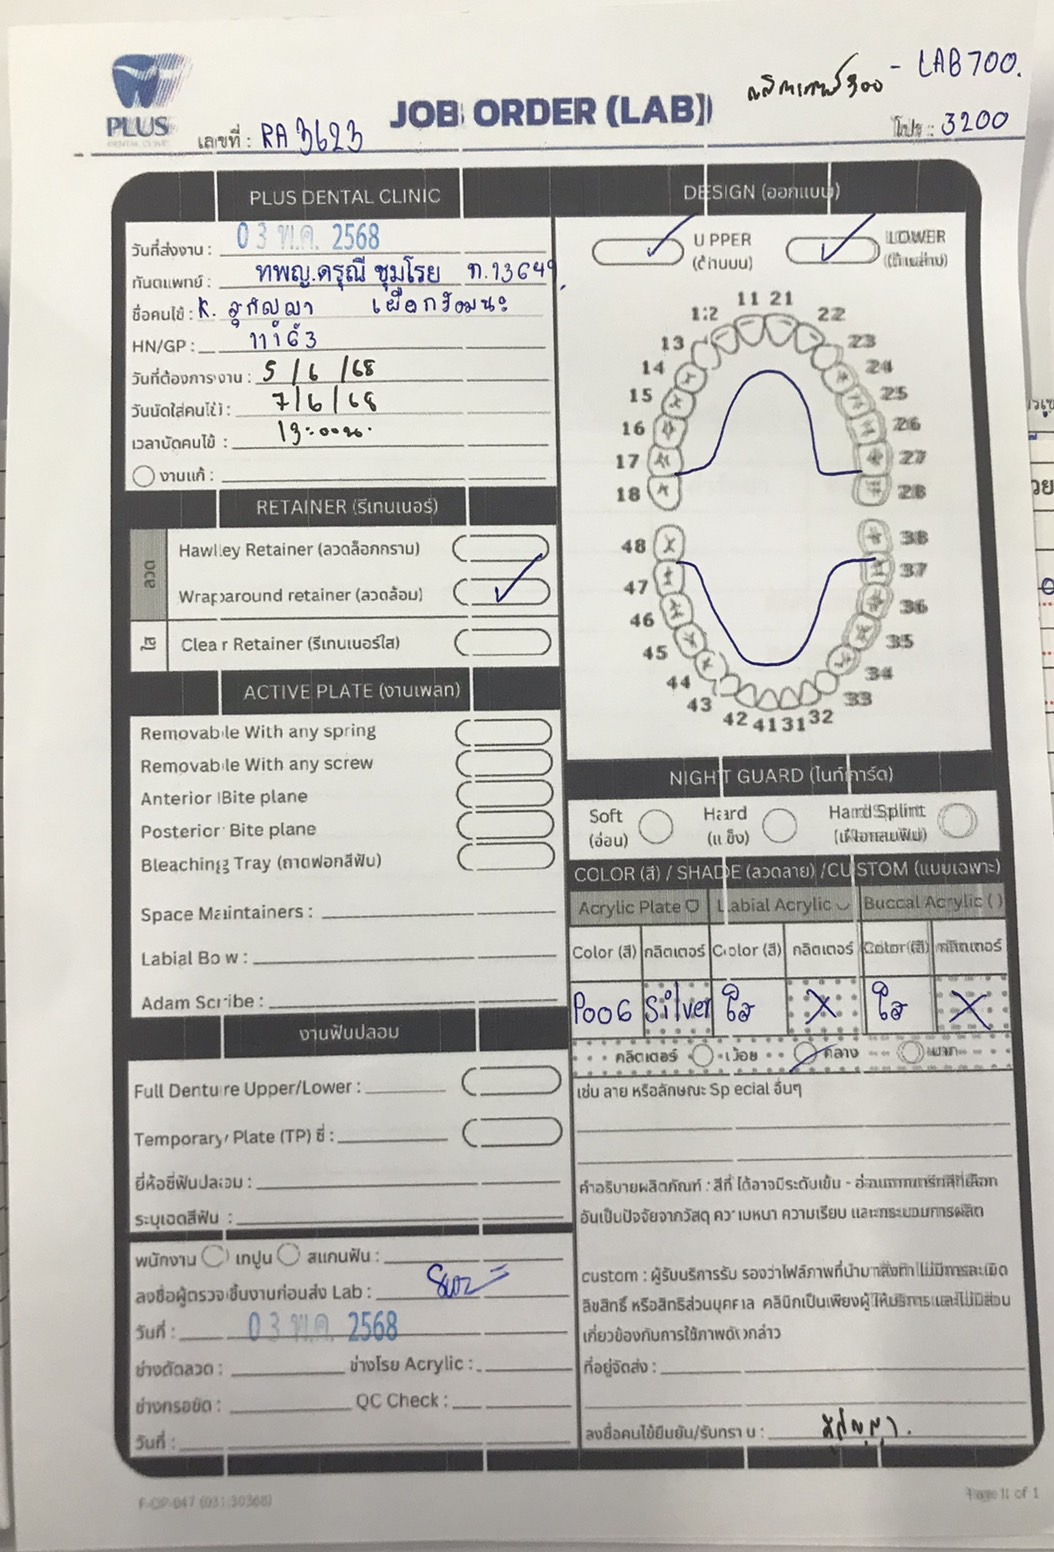 PLUS
DENTAL CLINIC
JOB ORDER (LAB)
- LAB 700.
โปร : 3200
เลขที่ : RA 3623
PLUS DENTAL CLINIC
วันที่ส่งงาน : 03 พ.ค. 2568
ทันตแพทย์ : ทพญ.ดรุณี ชุมโรย ท.13649
ชื่อคนไข้ : K.
HN/GP : 11163
วันที่ต้องการงาน : 5 / 6 / 68
วันนัดใส่คนไข้ : 7 / 6 / 68
เวลานัดคนไข้ : 13:00น.
งานแก้ :
RETAINER (รีเทนเนอร์)
ลวด
Hawlley Retainer (ลวดล็อกกราม)
Wraparound retainer (ลวดล้อม)
ใส
Clear Retainer (รีเทนเนอร์ใส)
ACTIVE PLATE (งานเพลท)
Removable With any spring
Removable With any screw
Anterior Bite plane
Posterior Bite plane
Bleaching Tray (ถาดฟอกสีฟัน)
Space Maintainers :
Labial Bow :
Adam Scribe :
งานฟันปลอม
Full Denture Upper/Lower :
Temporary Plate (TP) ซี่ :
ยี่ห้อซี่ฟันปลอม :
ระบุเฉดสีฟัน :
พนักงาน เทปูน สแกนฟัน :
ลงชื่อผู้ตรวจชิ้นงานก่อนส่ง Lab :
วันที่ : 03 พ.ค. 2568
ช่างดัดลวด : ช่างโรย Acrylic :
ช่างกรอขัด : QC Check :
วันที่ :
DESIGN (ออกแบบ)
UPPER
(ด้านบน)
LOWER
(ด้านล่าง)
11 21
12 22
13 23
14 24
15 25
16 26
17 27
18 28
48 38
47 37
46 36
45 35
44 34
43 33
42 41 31 32
NIGHT GUARD (ไนท์การ์ด)
Soft
(อ่อน)
Hard
(แข็ง)
Hard Splint
(เฝือกสบฟัน)
COLOR (สี) / SHADE (ลวดลาย) /CUSTOM (แบบเฉพาะ)
Acrylic Plate Labial Acrylic Buccal Acrylic ( )
Color (สี) กลิตเตอร์ Color (สี) กลิตเตอร์ Color (สี) กลิตเตอร์
P006 Silver ใส X ใส X
กลิตเตอร์ น้อย กลาง มาก
เช่น ลาย หรือลักษณะ Special อื่นๆ
คำอธิบายผลิตภัณฑ์ : สีที่ได้อาจมีระดับเข้ม - อ่อนแตกต่างจากสีที่เลือก
อันเป็นปัจจัยจากวัสดุ ความหนา ความเรียบ และกระบวนการผลิต
custom : ผู้รับบริการรับรองว่าไฟล์ภาพที่นำมาสั่งทำ ไม่มีการละเมิด
ลิขสิทธิ์ หรือสิทธิส่วนบุคคล คลินิกเป็นเพียงผู้ให้บริการและไม่มีส่วน
เกี่ยวข้องกับการใช้ภาพดังกล่าว
ที่อยู่จัดส่ง :
ลงชื่อคนไข้ยืนยัน/รับทราบ :
Page 1 of 1